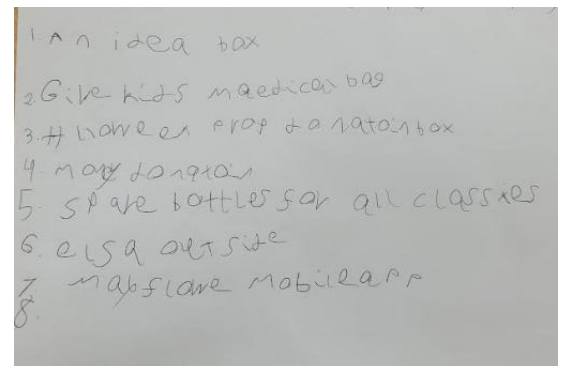 1. An idea box
2. Give kids maedical bag
3. # hoween prop donatoinbox
4. mony donatoin
5. spare bottles for all classxes
6. elsa outside
7. mapflowe mobileapp
8.